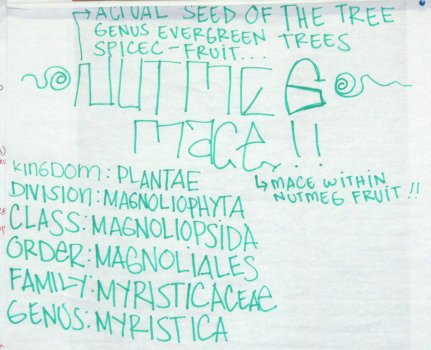 → ACTUAL SEED OF THE TREE
GENUS EVERGREEN TREES
SPICEC-FRUIT...
NUTMEG
MACE!!
↳ MACE WITHIN
NUTMEG FRUIT!!
KINGDOM: PLANTAE
DIVISION: MAGNOLIOPHYTA
CLASS: MAGNOLIOPSIDA
ORDER: MAGNOLIALES
FAMILY: MYRISTICACEAE
GENUS: MYRISTICA